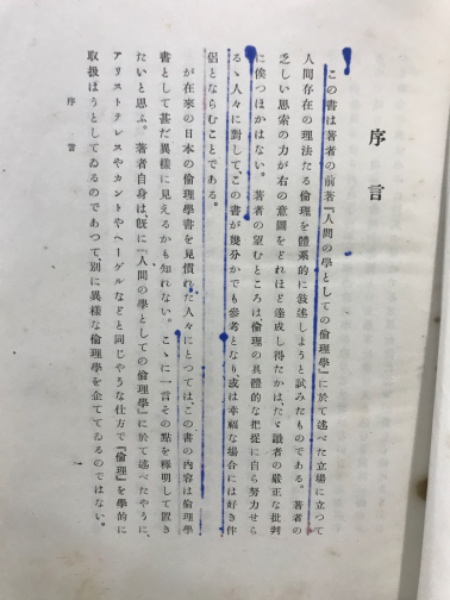 序言
この書は著者の前著『人間の學としての倫理學』に於て述べた立場に立つて
人間存在の理法たる倫理を體系的に敍述しようと試みたものである。著者の
乏しい思索の力が右の意圖をどれほど達成し得たかは、たゞ識者の嚴正な批判
に俟つほかはない。著者の望むところは、倫理の具體的な把捉に自ら努力せら
るゝ人々に對して、この書が幾分かでも參考となり、或は幸福な場合には好き伴
侶とならむことである。
が在來の日本の倫理學書を見慣れた人々にとつては、この書の內容は倫理學
書として甚だ異樣に見えるかも知れない。こゝに一言その點を釋明して置き
たいと思ふ。著者自身は、旣に『人間の學としての倫理學』に於て述べたやうに、
アリストテレスやカントやヘーゲルなどと同じやうな仕方で『倫理』を學的に
取扱はうとしてゐるのであつて、別に異樣な倫理學を企ててゐるのではない。
序言